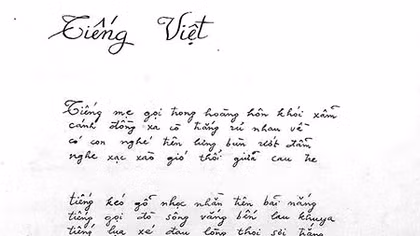 Tiếng Việt
Tiếng mẹ gọi trong hoàng hôn khói xẫm
cánh đồng xa cò trắng rủ nhau về
có con nghé trên lưng bùn ướt đẫm
nghe xạc xào gió thổi giữa cau tre
tiếng kéo gỗ nhọc nhằn trên bãi nắng
tiếng gọi đò sông vắng bến lau khuya
tiếng lụa xé đau lòng thoi sợi trắng